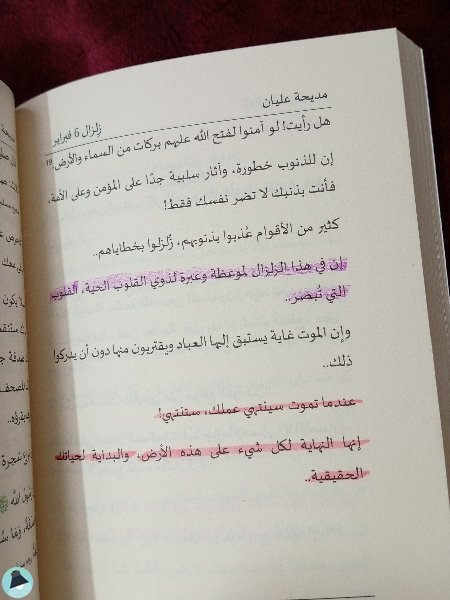 مديحة عليان
زلزال 6 فبراير
هل رأيت! لو آمنوا لفتح الله عليهم بركات من السماء والأرض.
إن للذنوب خطورة، وآثار سلبية جدًا على المؤمن وعلى الأمة.
فأنت بذنبك لا تضر نفسك فقط!
كثير من الأقوام عُذبوا بذنوبهم، زُلزلوا بخطاياهم..
إن في هذا الزلزال لموعظة وعبرة لذوي القلوب الحية، القلوب
التي تُبصر..
وإن الموت غاية يستبق إليها العباد ويقتربون منها دون أن يدركوا
ذلك..
عندما تموت سينتهي عملك، ستنتهي!
إنها النهاية لكل شيء على هذه الأرض، والبداية لحياتك
الحقيقية..